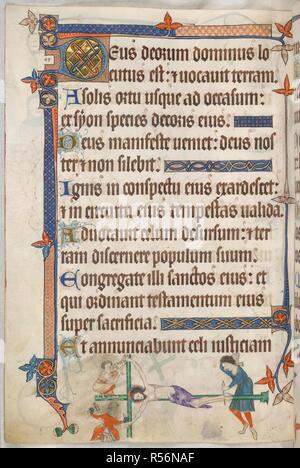 Deus deorum dominus lo
cutus est: et uocauit terram.
A solis ortu usque ad occasum:
et syon species decoris eius.
Deus manifeste ueniet: deus nos
ter et non silebit.
Ignis in conspectu eius exardescet:
et in circuitu eius tempestas ualida.
Aduocauit celum desursum: et ter
ram discernere populum suum.
Congregate illi sanctos eius: et
qui ordinant testamentum eius
super sacrificia.
Et annunciabunt celi iusticiam
alamy
Image ID: R56NAF
www.alamy.com